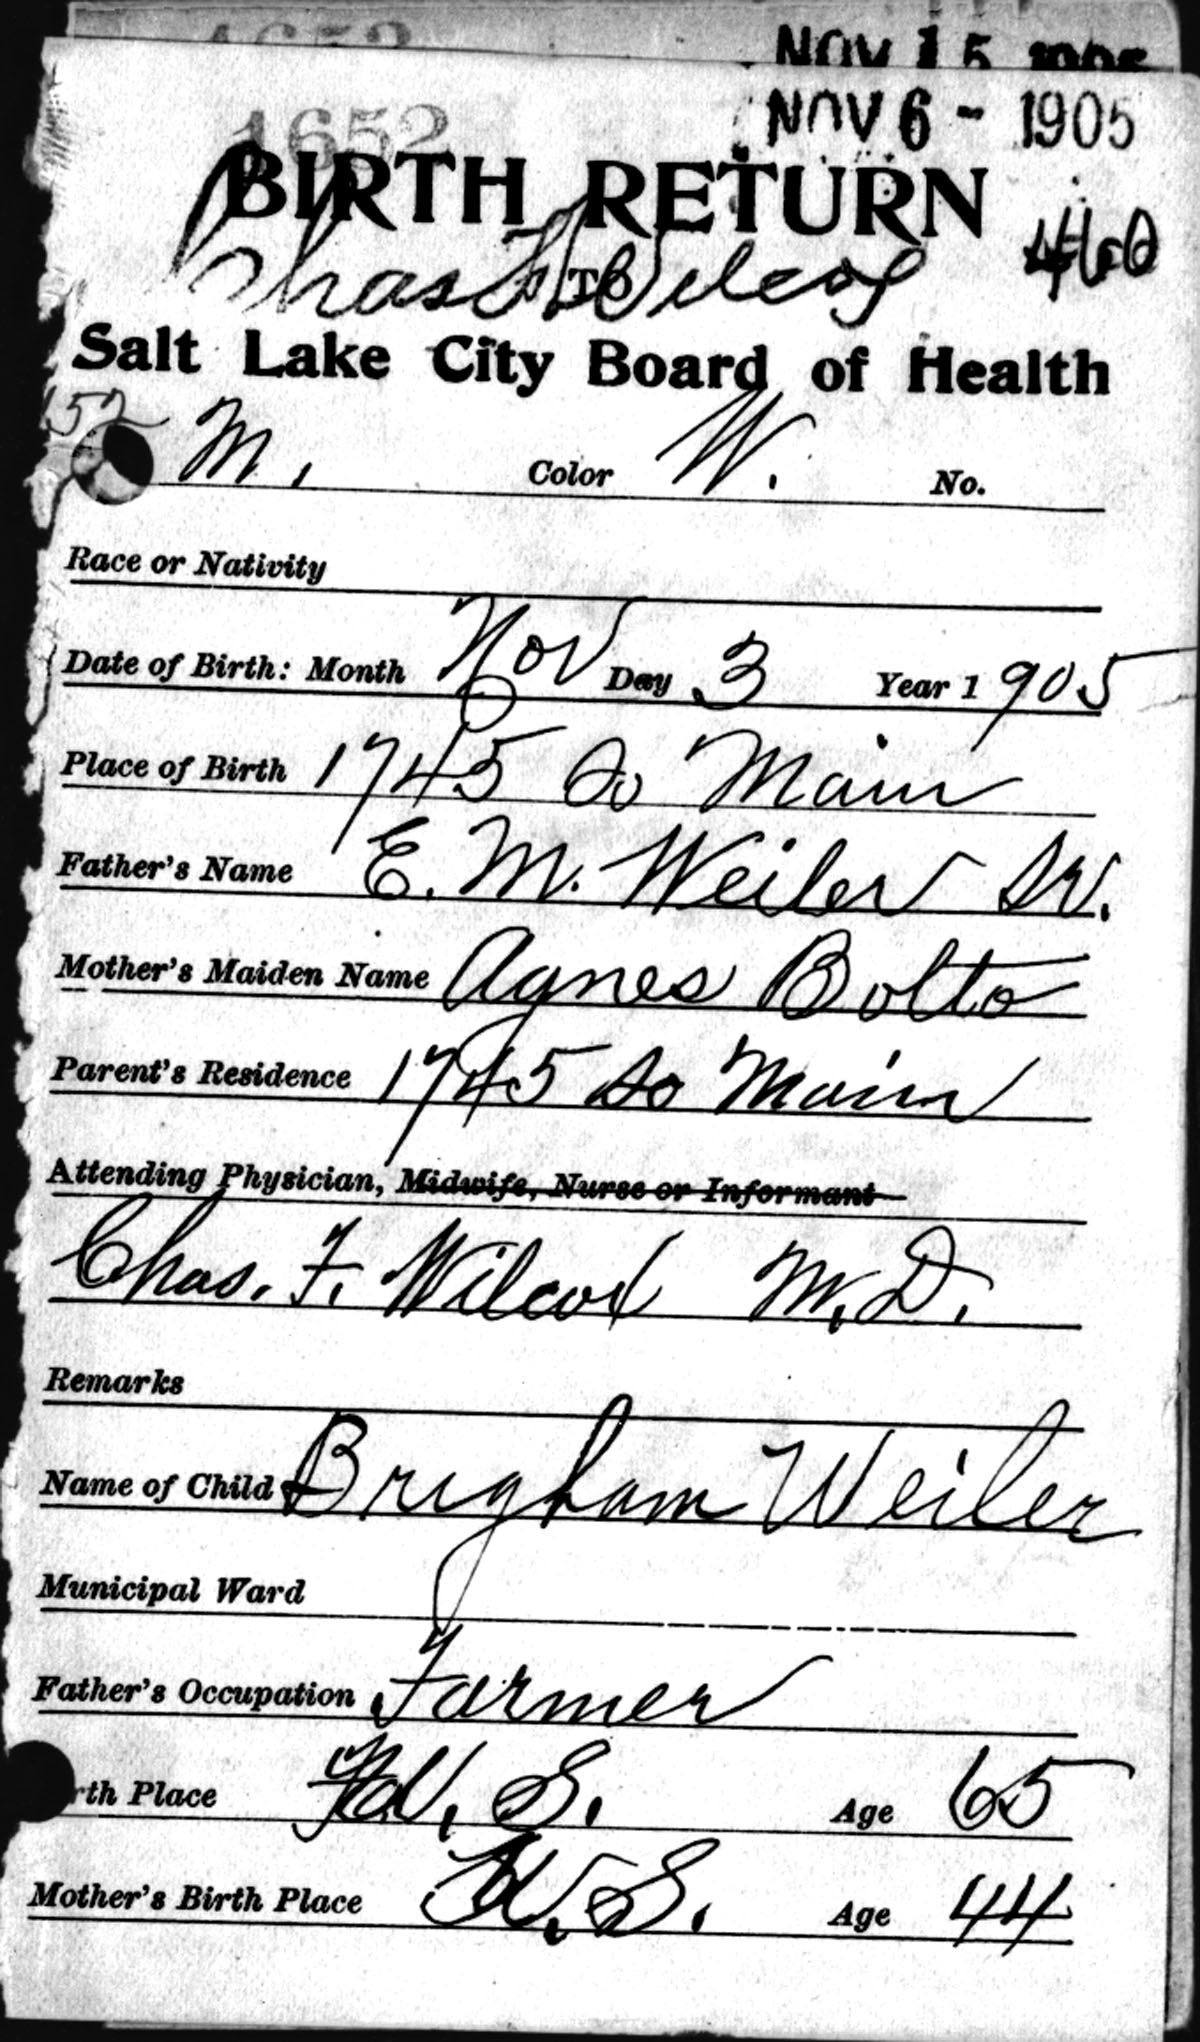 NOV 15 1905
NOV 6 - 1905
1652
BIRTH RETURN
460
TO
Chas F Wilcox
Salt Lake City Board of Health
M. Color W. No.
Race or Nativity
Date of Birth: Month Nov Day 3 Year 1905
Place of Birth 1745 So Main
Father's Name E. M. Weiler Sr.
Mother's Maiden Name Agnes Bolto
Parent's Residence 1745 So Main
Attending Physician, Midwife, Nurse or Informant
Chas. F. Wilcox M.D.
Remarks
Name of Child Brigham Weiler
Municipal Ward
Father's Occupation Farmer
rth Place U. S. Age 65
Mother's Birth Place U. S. Age 44